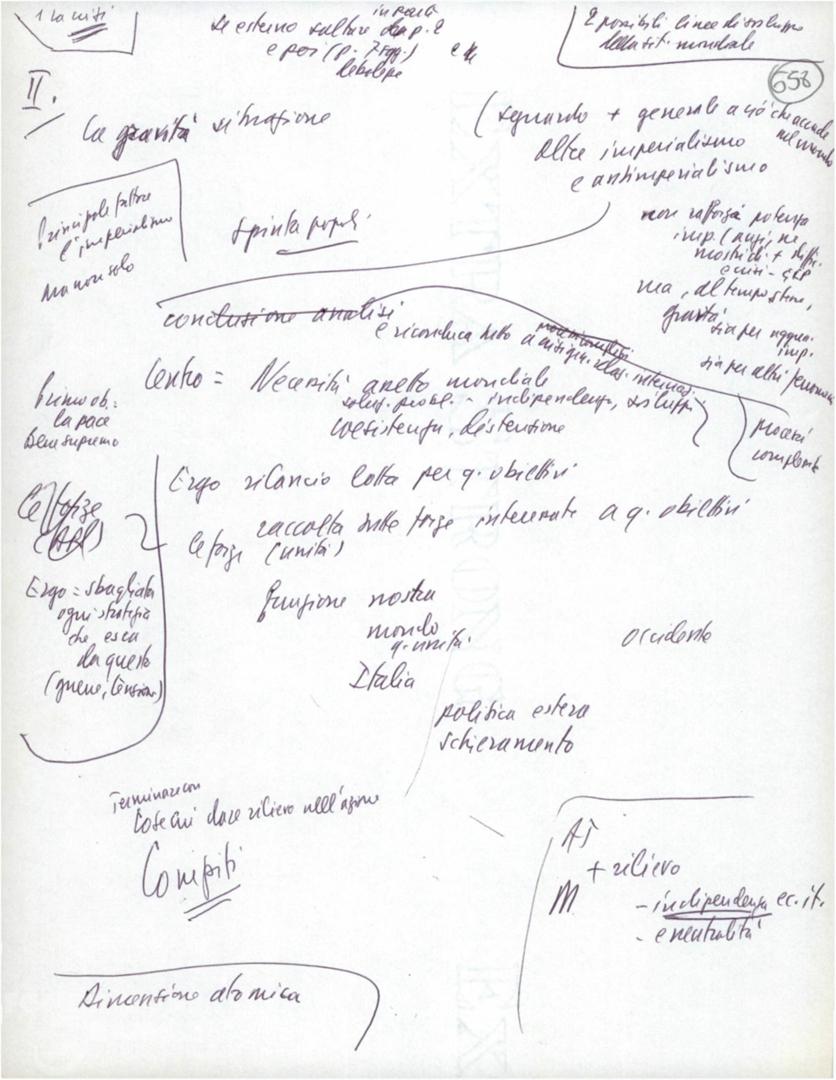 1 La crisi
in parte
e poi (p.
2 possibili linee di sviluppo
della sit. mondiale
658
II.
La gravità situazione
(sguardo + generale a ciò che accade
nel mondo
Oltre imperialismo
e antimperialismo
Principale fattore
l'imperialismo
ma non solo
Spinta popoli
non rafforza potenza
imp. (anzi, ne
mostra di +
ma, al tempo stesso,
gravità
sia per
imp.
sia per altri fenomeni
conclusione analisi
e riconduca tutto a
Centro = Necessità assetto mondiale
soluz. probl. - indipendenza, sviluppo
coesistenza, distensione
Primo ob. =
la pace
bene supremo
Processi
complessi
Ergo rilancio lotta per q. obiettivi
raccolta tutte forze interessate a q. obiettivi
le forze (unità)
Le forze
Ergo = sbagliata
ogni strategia
che esca
da queste
(guerre, tensione)
funzione nostra
mondo
q. unità.
Italia
occidente
politica estera
schieramento
Terminare con
Cose cui dare rilievo nell'azione
Compiti
+ rilievo
M
- indipendenza ec. it.
- e neutralità
Dimensione atomica